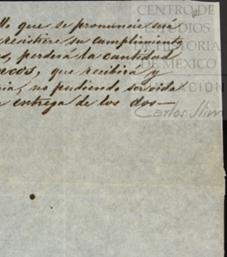 lo que se pronuncie será
resistiere su cumplimiento
perderá la cantidad
ncos, que recibirá y
no pudiendo ser oida
entrega de los dos—
CENTRO DE
ESTUDIOS
DE HISTORIA
DE MÉXICO
Carlos Slim